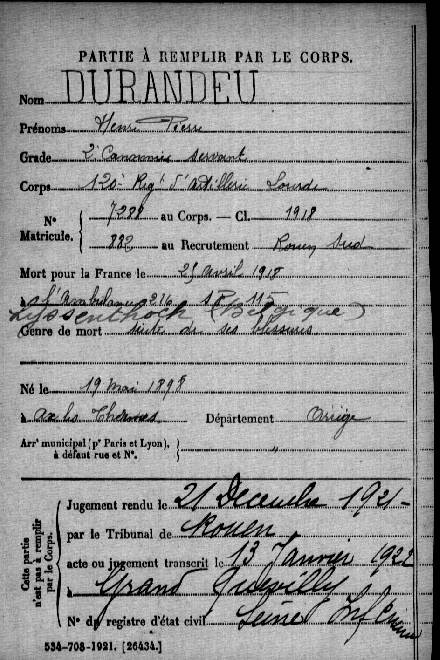 PARTIE À REMPLIR PAR LE CORPS.
Nom DURANDEU
Prénoms Henri Pierre
Grade 2e Canonnier servant
Corps 120e Régt d'Artillerie Lourde
N° Matricule. 7288 au Corps. — Cl. 1918
882 au Recrutement Rouen Sud
Mort pour la France le 25 avril 1918
à l'Ambulance 216 SP 115
Lyssenthock (Belgique)
Genre de mort suite de ses blessures
Né le 19 mai 1898
à Ax les Thermes Département Ariège
Arrt municipal (pr Paris et Lyon), à défaut rue et N°. "
Cette partie n'est pas à remplir par le Corps.
Jugement rendu le 21 Decembre 1921
par le Tribunal de Rouen
acte ou jugement transcrit le 13 Janvier 1922
à Grand Quevilly
N° du registre d'état civil Seine Inférieure
534-708-1921. [26434.]